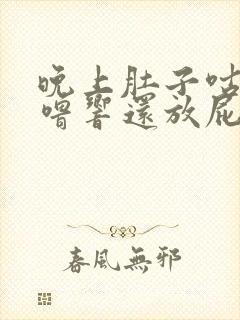 晚上肚子咕
噜響還放屁
春風無邪